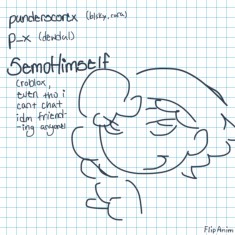 punderscorex (blixy, rara)
p_x (dendul)
SemoHimself
(roblox,
even tho i
cant chat
idm friend
-ing anyone)
FlipAnim